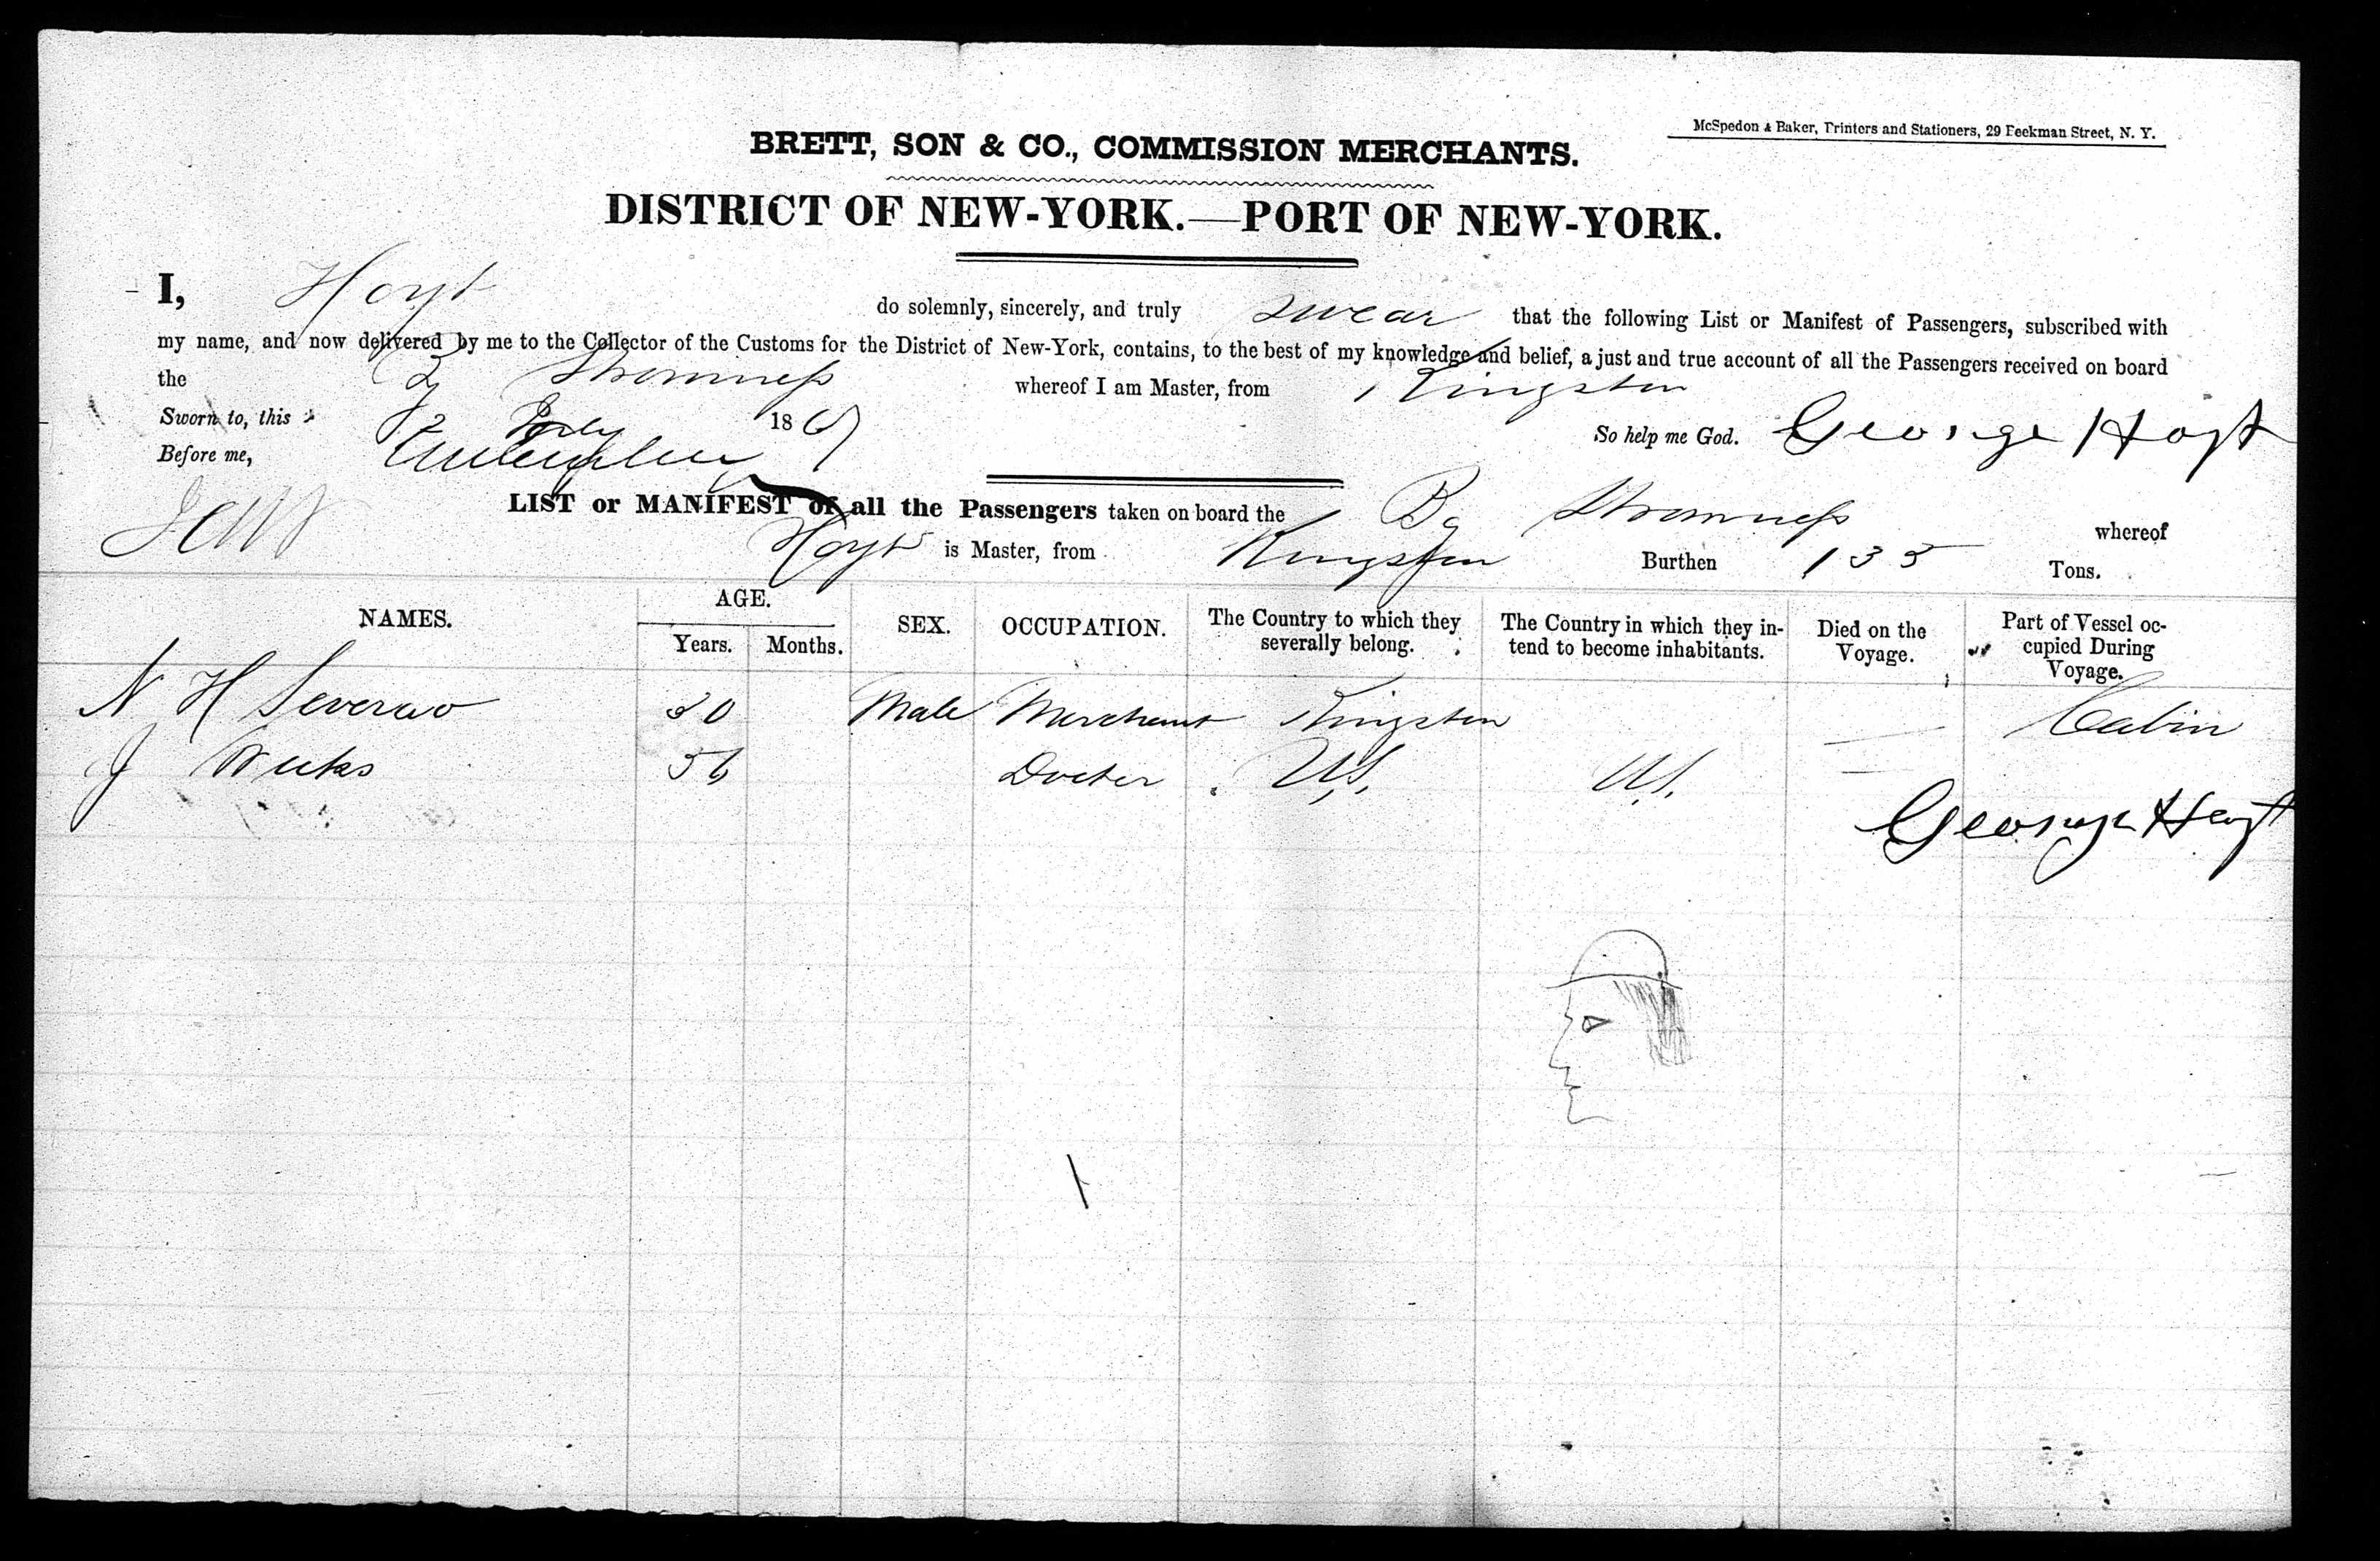 McSpedon & Baker, Printers and Stationers, 29 Beekman Street, N. Y.
BRETT, SON & CO., COMMISSION MERCHANTS.
DISTRICT OF NEW-YORK.—PORT OF NEW-YORK.
I, Hoyt do solemnly, sincerely, and truly swear that the following List or Manifest of Passengers, subscribed with
my name, and now delivered by me to the Collector of the Customs for the District of New-York, contains, to the best of my knowledge and belief, a just and true account of all the Passengers received on board
the Bg Stromness whereof I am Master, from Kingston
Sworn to, this 12 July 186 So help me God. George Hoyt
Before me,
LIST or MANIFEST of all the Passengers taken on board the Bg Stromness whereof
Hoyt is Master, from Kingston Burthen 133 Tons.
NAMES. AGE. Years. Months. SEX. OCCUPATION. The Country to which they severally belong. The Country in which they intend to become inhabitants. Died on the Voyage. Part of Vessel occupied During Voyage.
N H 30 Male Merchant Kingston Cabin
J Weeks 56 Docter U.S. U.S.
George Hoyt